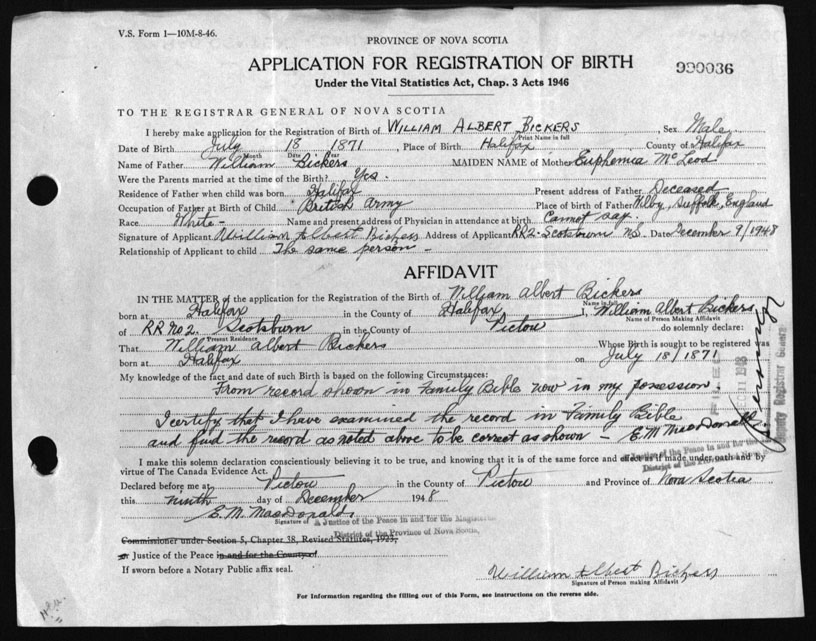 V.S. Form 1—10M-8-46.
PROVINCE OF NOVA SCOTIA
APPLICATION FOR REGISTRATION OF BIRTH
990036
Under the Vital Statistics Act, Chap. 3 Acts 1946
TO THE REGISTRAR GENERAL OF NOVA SCOTIA
I hereby make application for the Registration of Birth of WILLIAM ALBERT BICKERS, Sex Male
Print Name in full
Date of Birth July 18 1871, Place of Birth Halifax County of Halifax
Month Date Year
Name of Father William Bickers MAIDEN NAME of Mother Euphemia McLeod
Were the Parents married at the time of the Birth? Yes.
Residence of Father when child was born Halifax Present address of Father Deceased
Occupation of Father at Birth of Child British Army Place of birth of Father Suffolk, England
Race White - Name and present address of Physician in attendance at birth Cannot say.
Signature of Applicant William Albert Bickers Address of Applicant RR2- Scotsburn NS. Date December 9/1948
Relationship of Applicant to child The same person -
AFFIDAVIT
IN THE MATTER of the application for the Registration of Birth of William Albert Bickers
Name in full
born at Halifax in the County of Halifax I, William Albert Bickers
Name of Person Making Affidavit
of RR No 2. Scotsburn in the County of Pictou do solemnly declare:
Present Residence
That William Albert Bickers Whose Birth is sought to be registered was
born at Halifax on July 18/1871
My knowledge of the fact and date of such Birth is based on the following Circumstances:
From record shown in Family Bible now in my possession.
I certify that I have examined the record in Family Bible
and find the record as noted above to be correct as shown - E.M. MacDonald
A Justice of the Peace in and for the
District of the
I make this solemn declaration conscientiously believing it to be true, and knowing that it is of the same force and effect as if made under oath and by
virtue of The Canada Evidence Act.
Declared before me at Pictou in the County of Pictou and Province of Nova Scotia
this ninth day of December 1948
E. M. MacDonald,
Signature of A Justice of the Peace in and for the
District of the Province of Nova Scotia,
Commissioner under Section 5, Chapter 38, Revised Statutes, 1923,
or Justice of the Peace in and for the County of
If sworn before a Notary Public affix seal.
William Albert Bickers
Signature of Person making Affidavit
For Information regarding the filling out of this Form, see instructions on the reverse side.
Deputy Registrar General